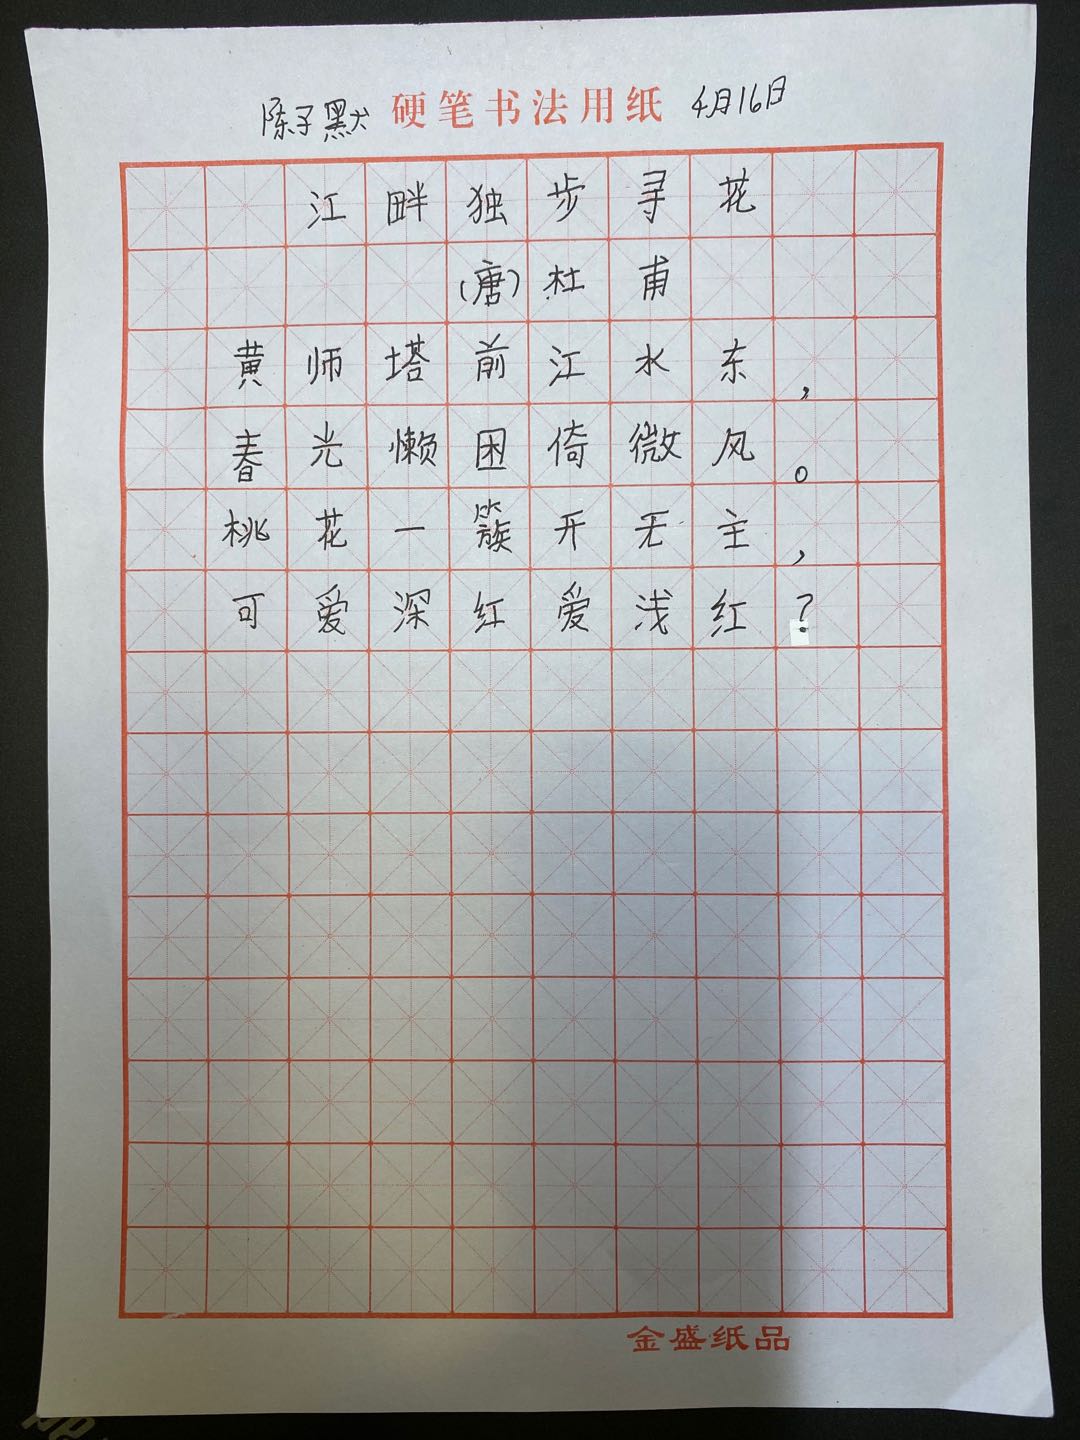 陈子默 硬笔书法用纸 4月16日
江畔独步寻花
(唐)杜甫
黄师塔前江水东，
春光懒困倚微风。
桃花一簇开无主，
可爱深红爱浅红？
金盛纸品